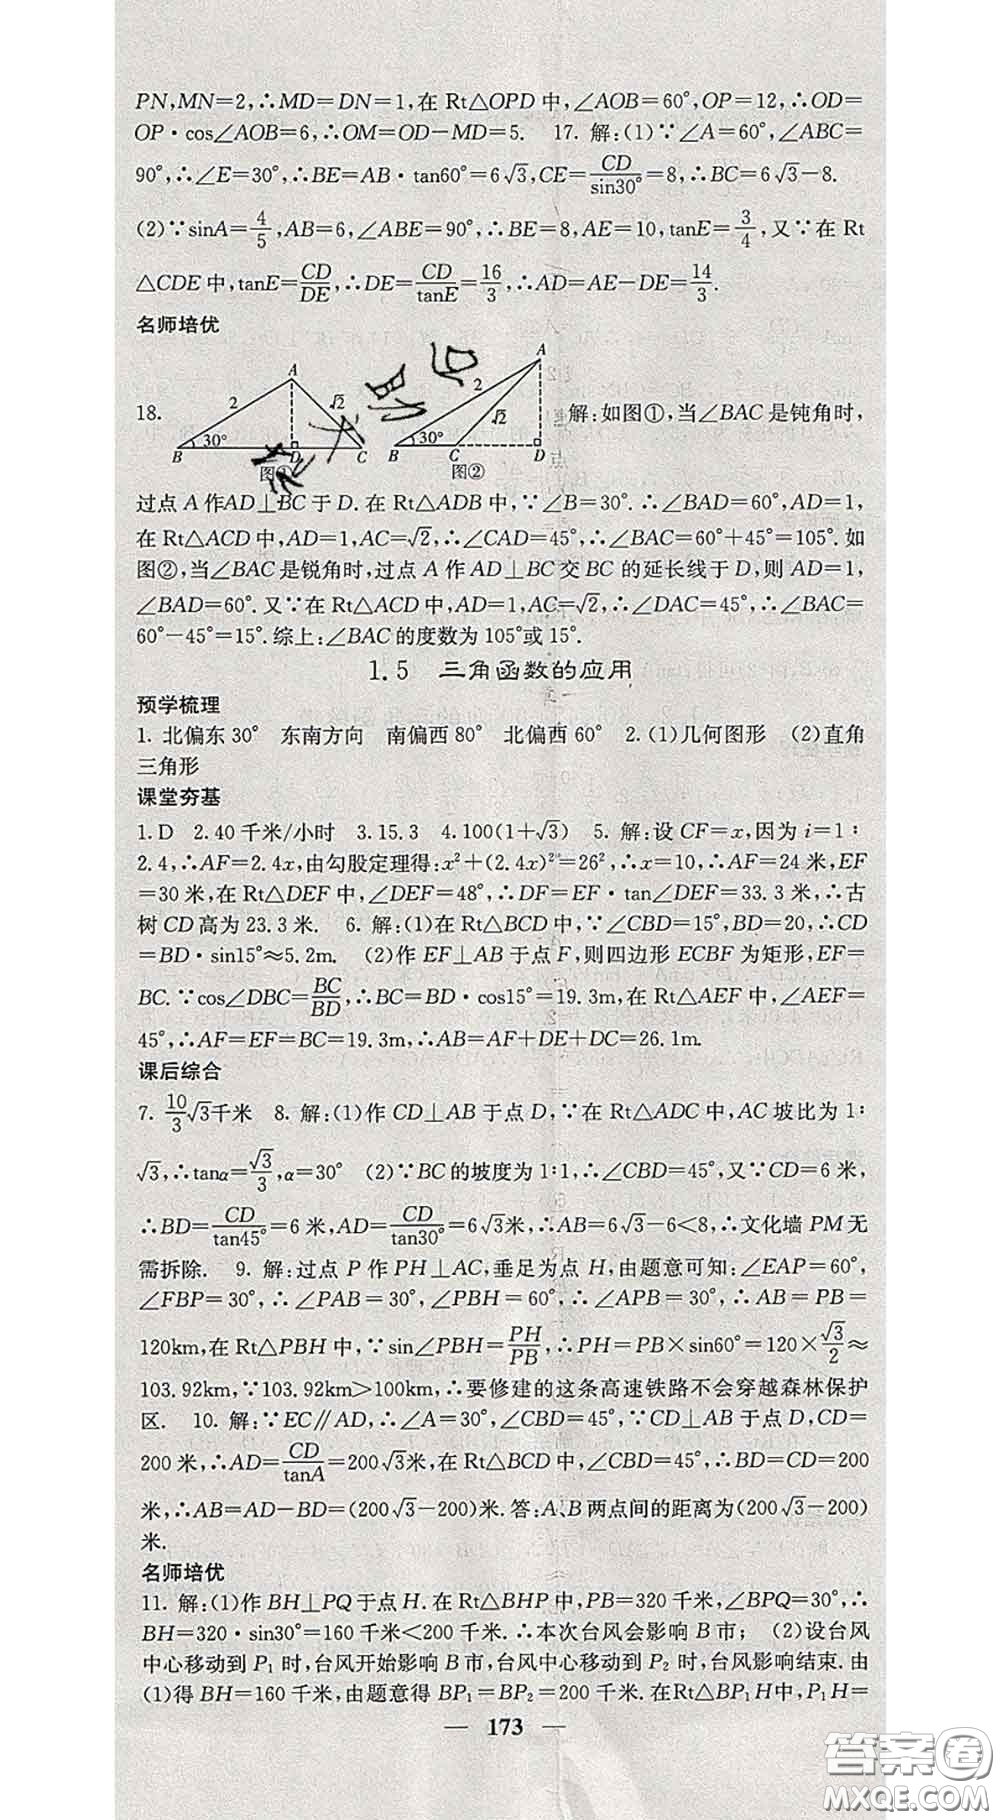 PN,MN=2,∴MD=DN=1,在 Rt△OPD 中,∠AOB=60°,OP=12,∴OD=
OP·cos∠AOB=6,∴OM=OD-MD=5. 17. 解:(1)∵∠A=60°,∠ABC=
90°,∴∠E=30°,∴BE=AB·tan60°=6√3,CE=CD/sin30°=8,∴BC=6√3-8.
(2)∵sinA=4/5,AB=6,∠ABE=90°,∴BE=8,AE=10,tanE=3/4,又∵在 Rt
△CDE 中,tanE=CD/DE,∴DE=CD/tanE=16/3,∴AD=AE-DE=14/3.
名师培优
18. 解:如图①,当∠BAC 是钝角时,
A 2 √2 30° B D C 图①
A 2 √2 30° B C D 图②
过点 A 作AD⊥BC 于 D. 在 Rt△ADB 中,∵∠B=30°.∴∠BAD=60°,AD=1,
在 Rt△ACD 中,AD=1,AC=√2,∴∠CAD=45°,∴∠BAC=60°+45°=105°. 如
图②,当∠BAC 是锐角时,过点 A 作 AD⊥BC 交 BC 的延长线于 D,则 AD=1,
∠BAD=60°. 又∵在 Rt△ACD 中,AD=1,AC=√2,∴∠DAC=45°,∴∠BAC=
60°-45°=15°. 综上:∠BAC 的度数为 105°或 15°.
1.5 三角函数的应用
预学梳理
1. 北偏东 30° 东南方向 南偏西 80° 北偏西 60° 2. (1)几何图形 (2)直角
三角形
课堂夯基
1. D 2. 40 千米/小时 3. 15.3 4. 100(1+√3) 5. 解:设 CF=x,因为 i=1∶
2.4,∴AF=2.4x,由勾股定理得:x²+(2.4x)²=26²,∴x=10,∴AF=24 米,EF
=30 米,在 Rt△DEF 中,∠DEF=48°,∴DF=EF·tan∠DEF=33.3 米,∴古
树 CD 高为 23.3 米. 6. 解:(1)在 Rt△BCD 中,∵∠CBD=15°,BD=20,∴CD
=BD·sin15°≈5.2m. (2)作 EF⊥AB 于点 F,则四边形 ECBF 为矩形,EF=
BC.∵cos∠DBC=BC/BD,∴BC=BD·cos15°=19.3m,在 Rt△AEF 中,∠AEF=
45°,∴AF=EF=BC=19.3m,∴AB=AF+DE+DC=26.1m.
课后综合
7. 10/3√3千米 8. 解:(1)作 CD⊥AB 于点 D,∵在 Rt△ADC 中,AC 坡比为 1∶
√3,∴tanα=√3/3,α=30° (2)∵BC 的坡度为 1∶1,∴∠CBD=45°,又∵CD=6 米,
∴BD=CD/tan45°=6 米,AD=CD/tan30°=6√3米,∴AB=6√3-6<8,∴文化墙 PM 无
需拆除. 9. 解:过点 P 作 PH⊥AC,垂足为点 H,由题意可知:∠EAP=60°,
∠FBP=30°,∴∠PAB=30°,∠PBH=60°,∴∠APB=30°,∴AB=PB=
120km,在 Rt△PBH 中,∵sin∠PBH=PH/PB,∴PH=PB×sin60°=120×√3/2≈
103.92km,∵103.92km>100km,∴要修建的这条高速铁路不会穿越森林保护
区. 10. 解:∵EC∥AD,∴∠A=30°,∠CBD=45°,∵CD⊥AB 于点 D,CD=
200 米,∴AD=CD/tanA=200√3米,在 Rt△BCD 中,∠CBD=45°,∴BD=CD=200
米,∴AB=AD-BD=(200√3-200)米. 答:A、B 两点间的距离为(200√3-200)
米.
名师培优
11. 解:(1)作 BH⊥PQ 于点 H. 在 Rt△BHP 中,PB=320 千米,∠BPQ=30°,∴
BH=320·sin30°=160 千米<200 千米.∴本次台风会影响 B 市; (2)设台风
中心移动到 P₁ 时,台风开始影响 B 市,台风中心移动到 P₂ 时,台风影响结束. 由
(1)得 BH=160 千米,由题意得 BP₁=BP₂=200 千米. 在Rt△BP₁H中,P₁H=
— 173 —
答案圈
MXQE.COM